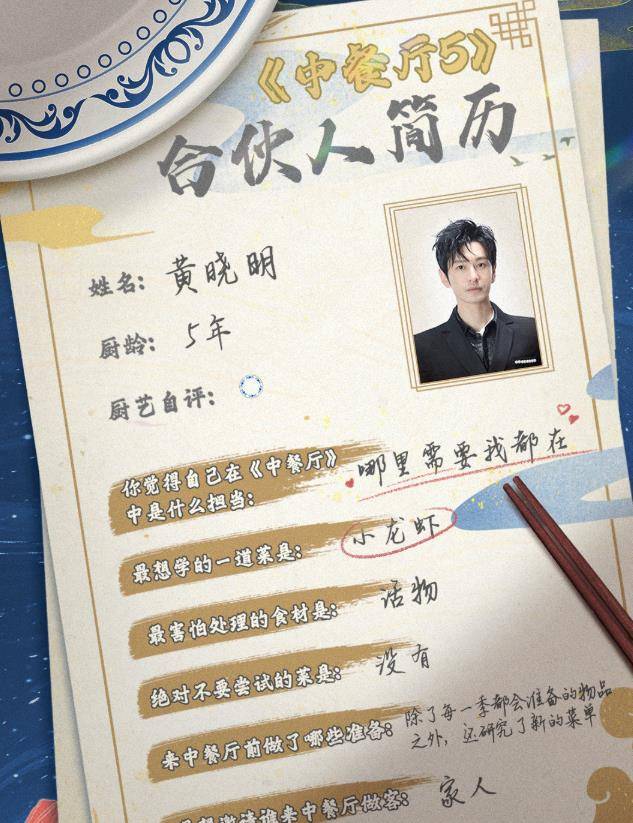 《中餐厅5》
合伙人简历
姓名： 黄晓明
厨龄： 5年
厨艺自评：
你觉得自己在《中餐厅》
中是什么担当： 哪里需要我都在
最想学的一道菜是： 小龙虾
最害怕处理的食材是： 活物
绝对不要尝试的菜是： 没有
来中餐厅前做了哪些准备： 除了每一季都会准备的物品
之外，还研究了新的菜单
想邀请谁来中餐厅做客： 家人